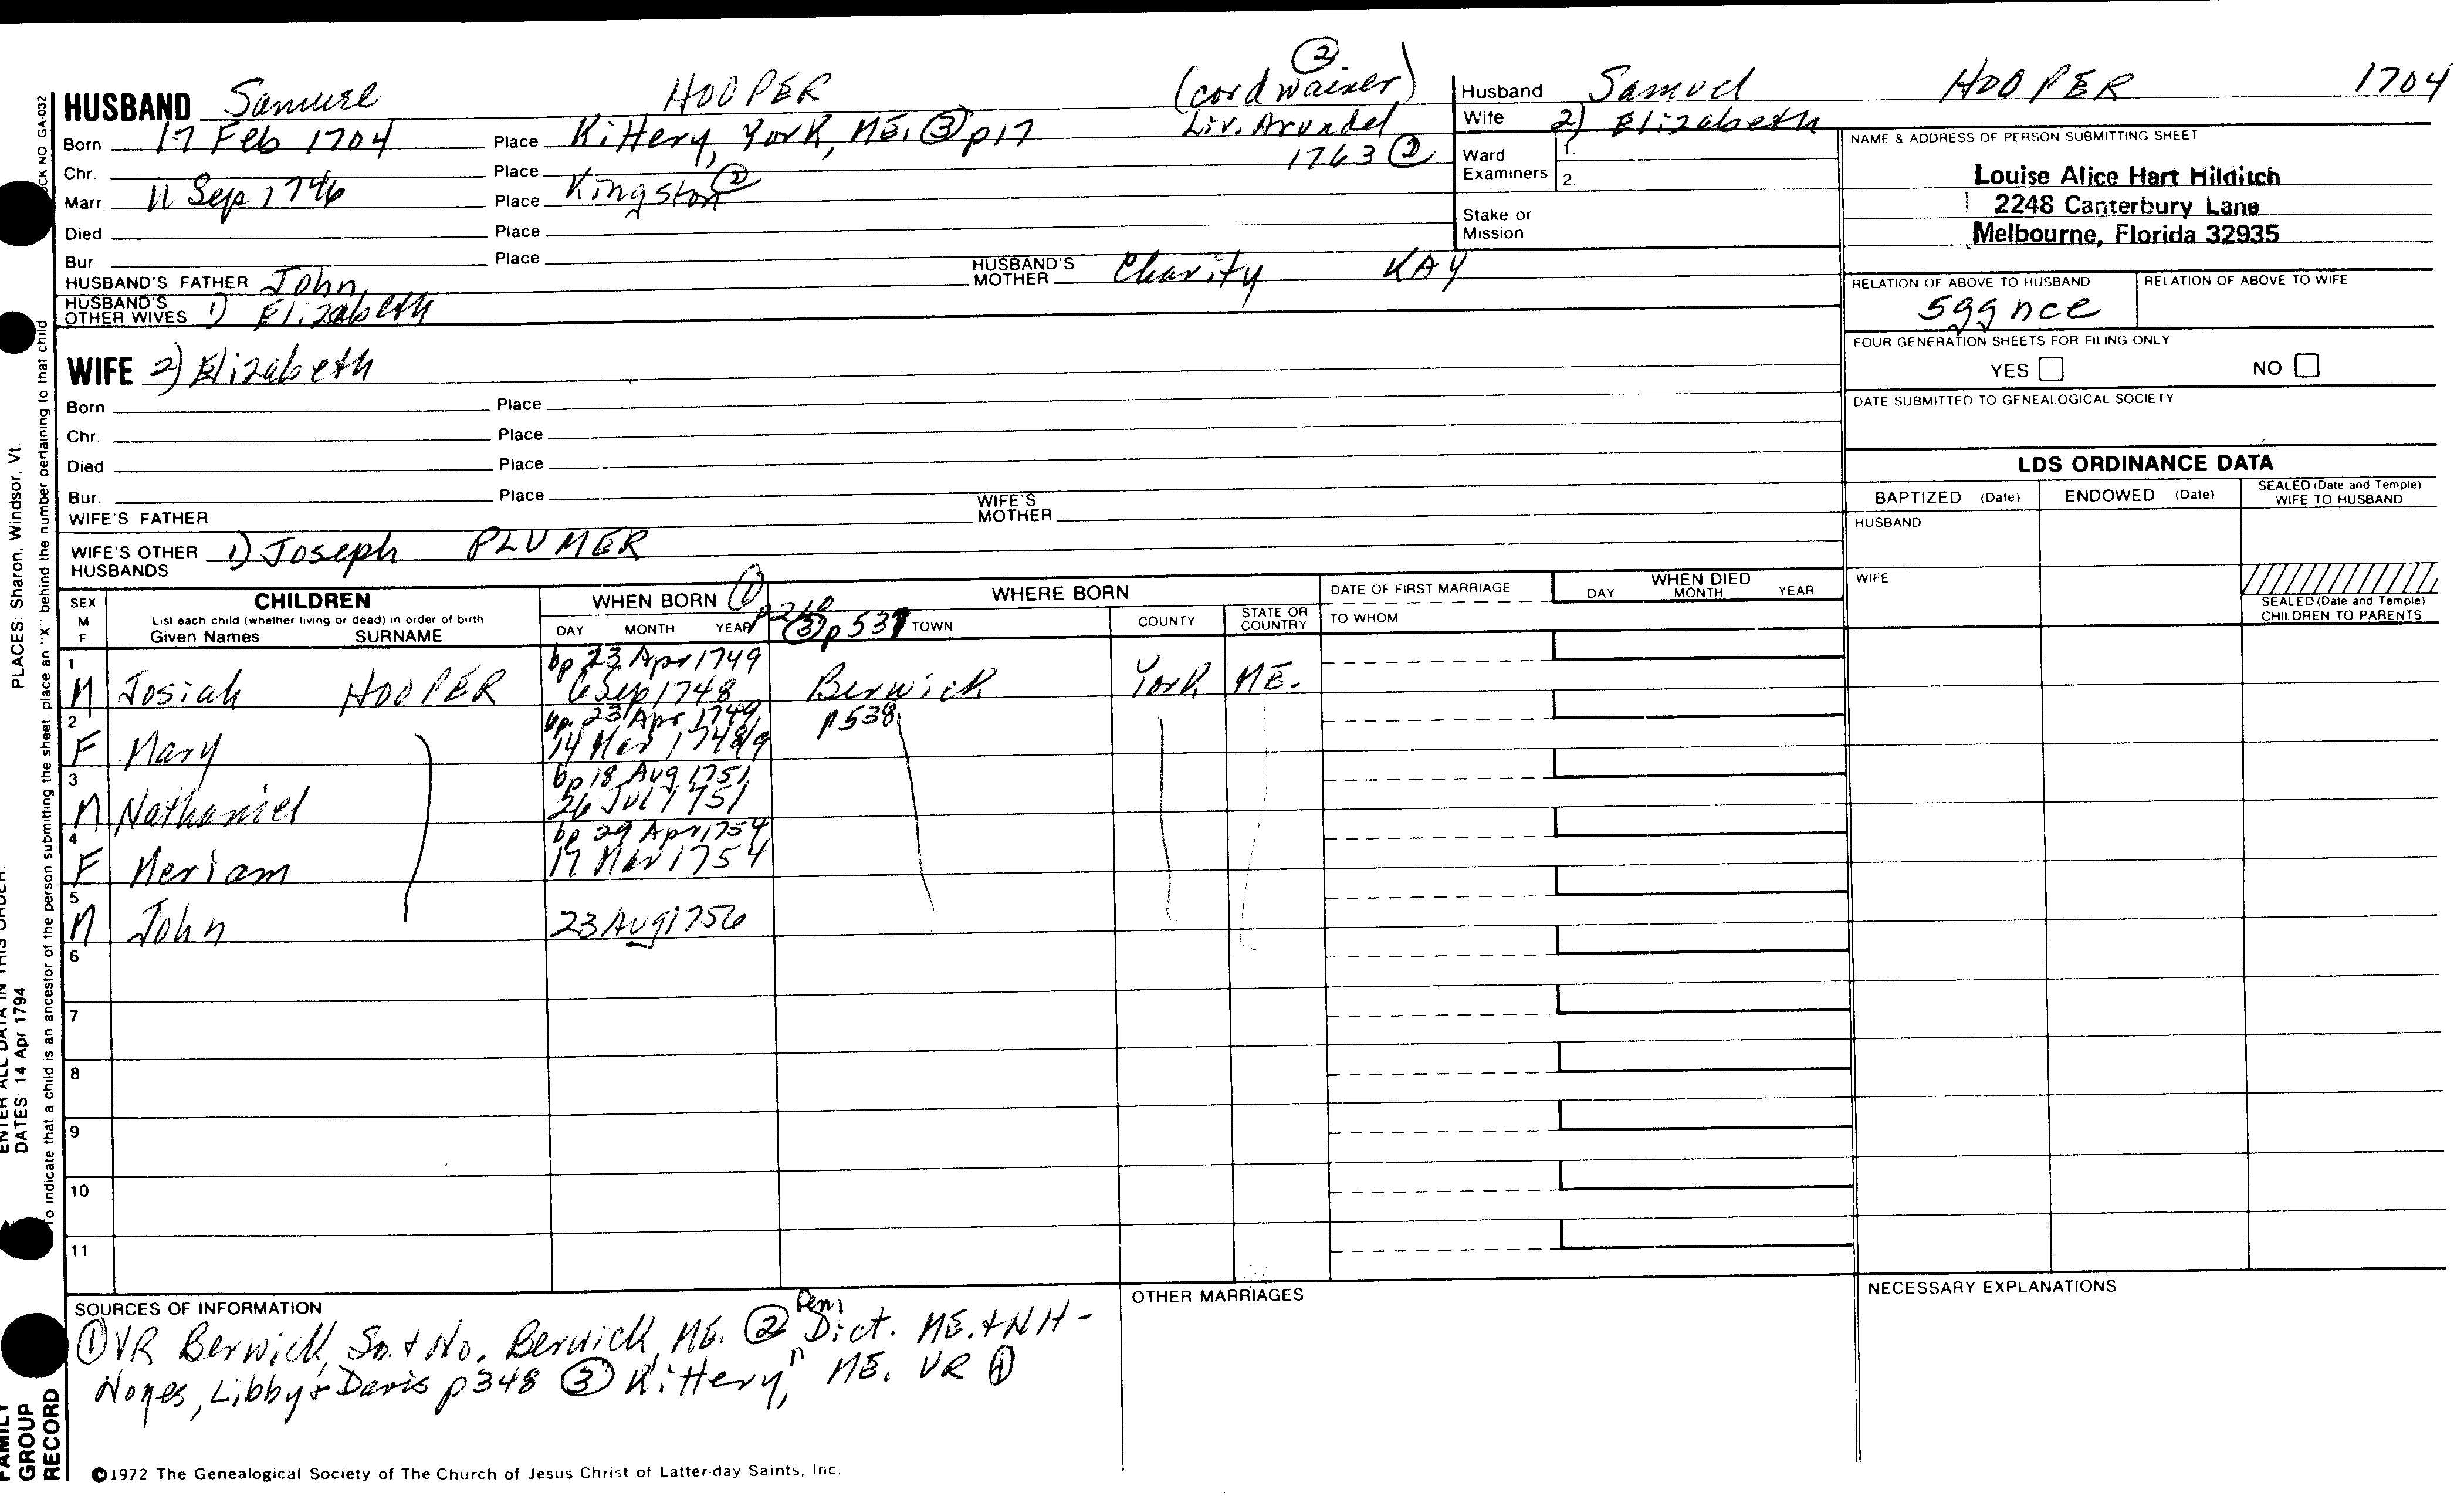 HUSBAND Samuel HOOPER (cordwainer) ②
Born 17 Feb 1704 Place Kittery, York, ME. ③ p17 Liv. Arundel
Chr. Place 1763 ②
Marr. 11 Sep 1746 Place Kingston ②
Died Place
Bur. Place
HUSBAND'S FATHER John HUSBAND'S MOTHER Charity KAY
HUSBAND'S OTHER WIVES 1) Elizabeth
Husband Samuel HOOPER 1704
Wife 2) Elizabeth
Ward Examiners: 1.
2.
Stake or Mission
NAME & ADDRESS OF PERSON SUBMITTING SHEET
Louise Alice Hart Hilditch
2248 Canterbury Lane
Melbourne, Florida 32935
RELATION OF ABOVE TO HUSBAND RELATION OF ABOVE TO WIFE
5ggnce
FOUR GENERATION SHEETS FOR FILING ONLY
YES NO
DATE SUBMITTED TO GENEALOGICAL SOCIETY
WIFE 2) Elizabeth
Born Place
Chr. Place
Died Place
Bur. Place
WIFE'S FATHER WIFE'S MOTHER
WIFE'S OTHER HUSBANDS 1) Joseph PLUMER
LDS ORDINANCE DATA
BAPTIZED (Date) ENDOWED (Date) SEALED (Date and Temple) WIFE TO HUSBAND
HUSBAND
WIFE
SEALED (Date and Temple) CHILDREN TO PARENTS
SEX M F
CHILDREN
List each child (whether living or dead) in order of birth
Given Names SURNAME
WHEN BORN ①
DAY MONTH YEAR
③ p 537
WHERE BORN
TOWN COUNTY STATE OR COUNTRY
DATE OF FIRST MARRIAGE
TO WHOM
WHEN DIED
DAY MONTH YEAR
1 bp 23 Apr 1749
M Josiah HOOPER 6 Sep 1748 Berwick York ME.
2 bp. 23 Apr 1749 p538
F Mary 14 Mar 1748/9
3 bp 18 Aug 1751
M Nathaniel 26 Jul 1751
4 bp 29 Apr 1754
F Meriam 17 Mar 1754
5
M John 23 Aug 1756
6
7
8
9
10
11
SOURCES OF INFORMATION
① VR Berwick, So. + No. Berwick, ME. ② Gen. Dict. ME. + NH -
Noyes, Libby + Davis p348 ③ Kittery, ME. VR
OTHER MARRIAGES
NECESSARY EXPLANATIONS
©1972 The Genealogical Society of The Church of Jesus Christ of Latter-day Saints, Inc.
FAMILY GROUP RECORD
ENTER ALL DATA IN THIS ORDER:
DATES: 14 Apr 1794
PLACES: Sharon, Windsor, Vt.
To indicate that a child is an ancestor of the person submitting the sheet, place an "X" behind the number pertaining to that child
NO GA-032